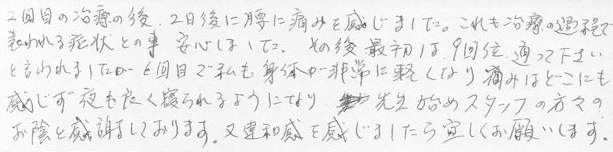 2回目の治療の後、2日後に腰に痛みを感じました。これも治療の過程で
表われる症状との事 安心しました。その後最初は、9回位 通って下さい
と言われましたが 6回目で私も身体が非常に軽くなり 痛みはどこにも
感じず 夜もたく寝られるようになり 先生始めスタッフの方々の
お陰と感謝しております。又違和感を感じましたら宜しくお願いします。